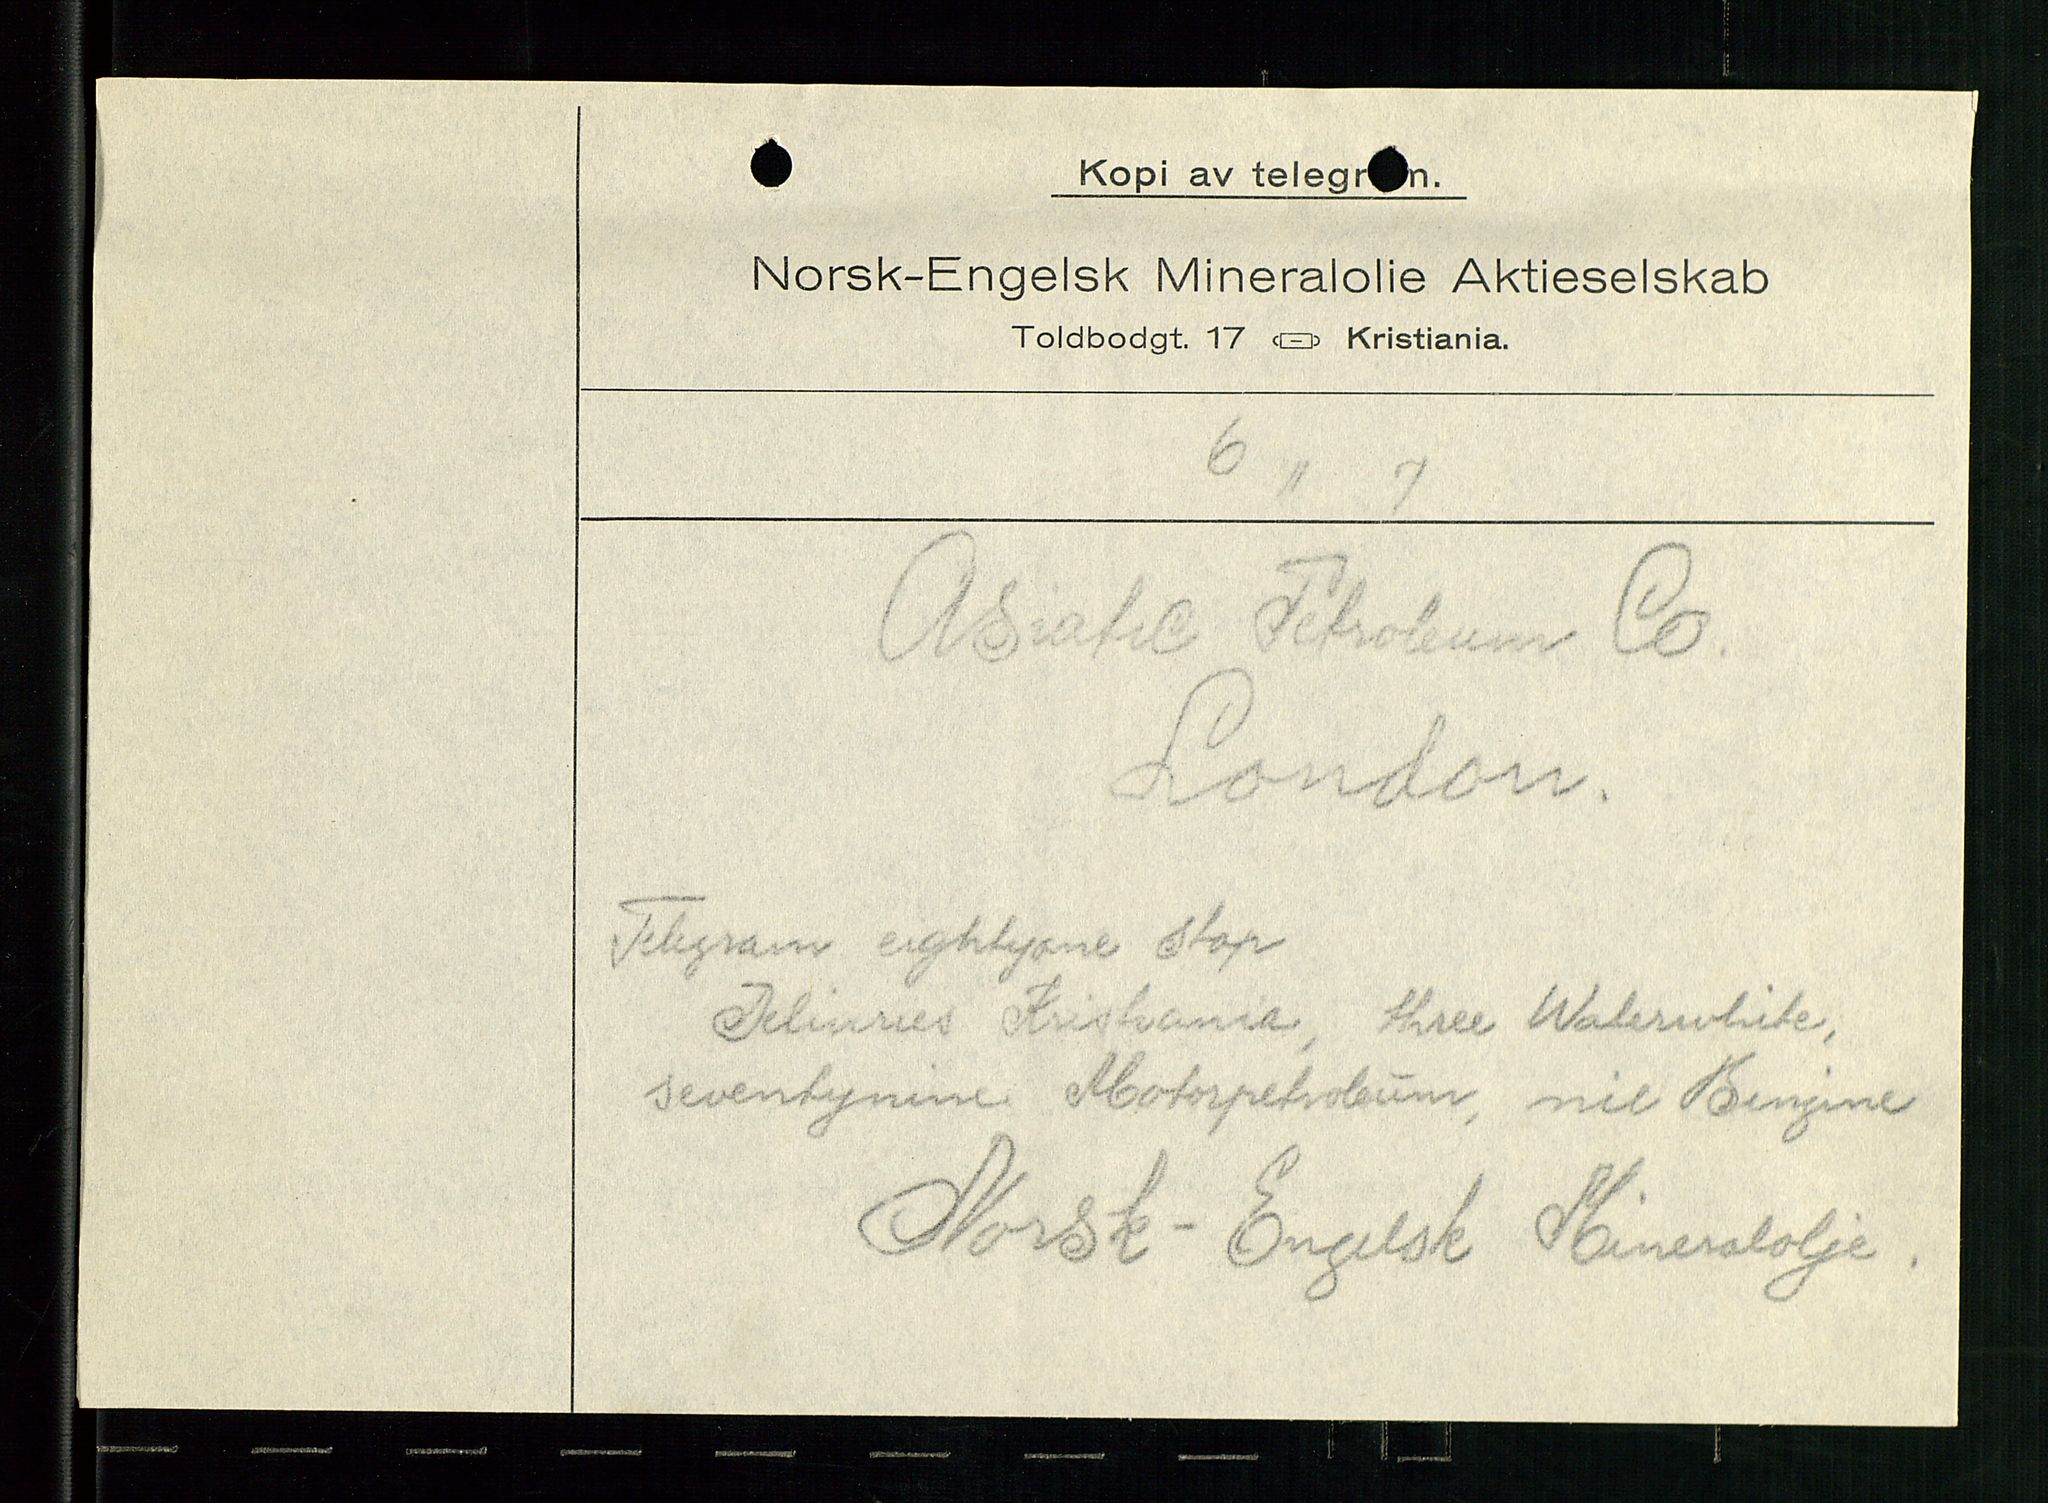 Kopi av telegram.
Norsk-Engelsk Mineralolie Aktieselskab
Toldbodgt. 17 Kristiania.
6 " 7
Asiatic Petroleum Co.
London.
Telegram eightyone stop
Deliveries Kristiania, three Waterwhite,
seventynine Motorpetroleum, nil Benzine
Norsk-Engelsk Mineralolje.